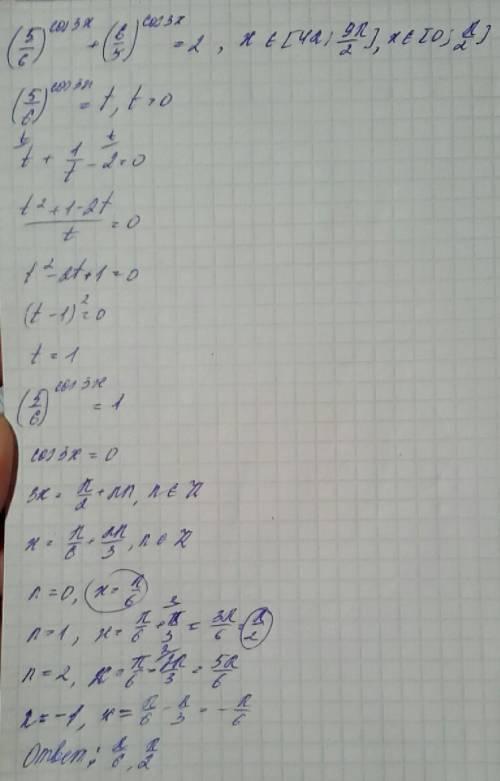 (5/6)^cos3x + (6/5)^cos3x = 2, x ∈ [4π; 9π/2], x ∈ [0; π/2]
(5/6)^cos3x = t, t > 0
t + 1/t - 2 = 0
(t² + 1 - 2t)/t = 0
t² - 2t + 1 = 0
(t - 1)² = 0
t = 1
(5/6)^cos3x = 1
cos3x = 0
3x = π/2 + πn, n ∈ Z
x = π/6 + πn/3, n ∈ Z
n = 0, x = π/6
n = 1, x = π/6 + π/3 = 3π/6 = π/2
n = 2, x = π/6 + 2π/3 = 5π/6
n = -1, x = π/6 - π/3 = -π/6
Ответ: π/6, π/2